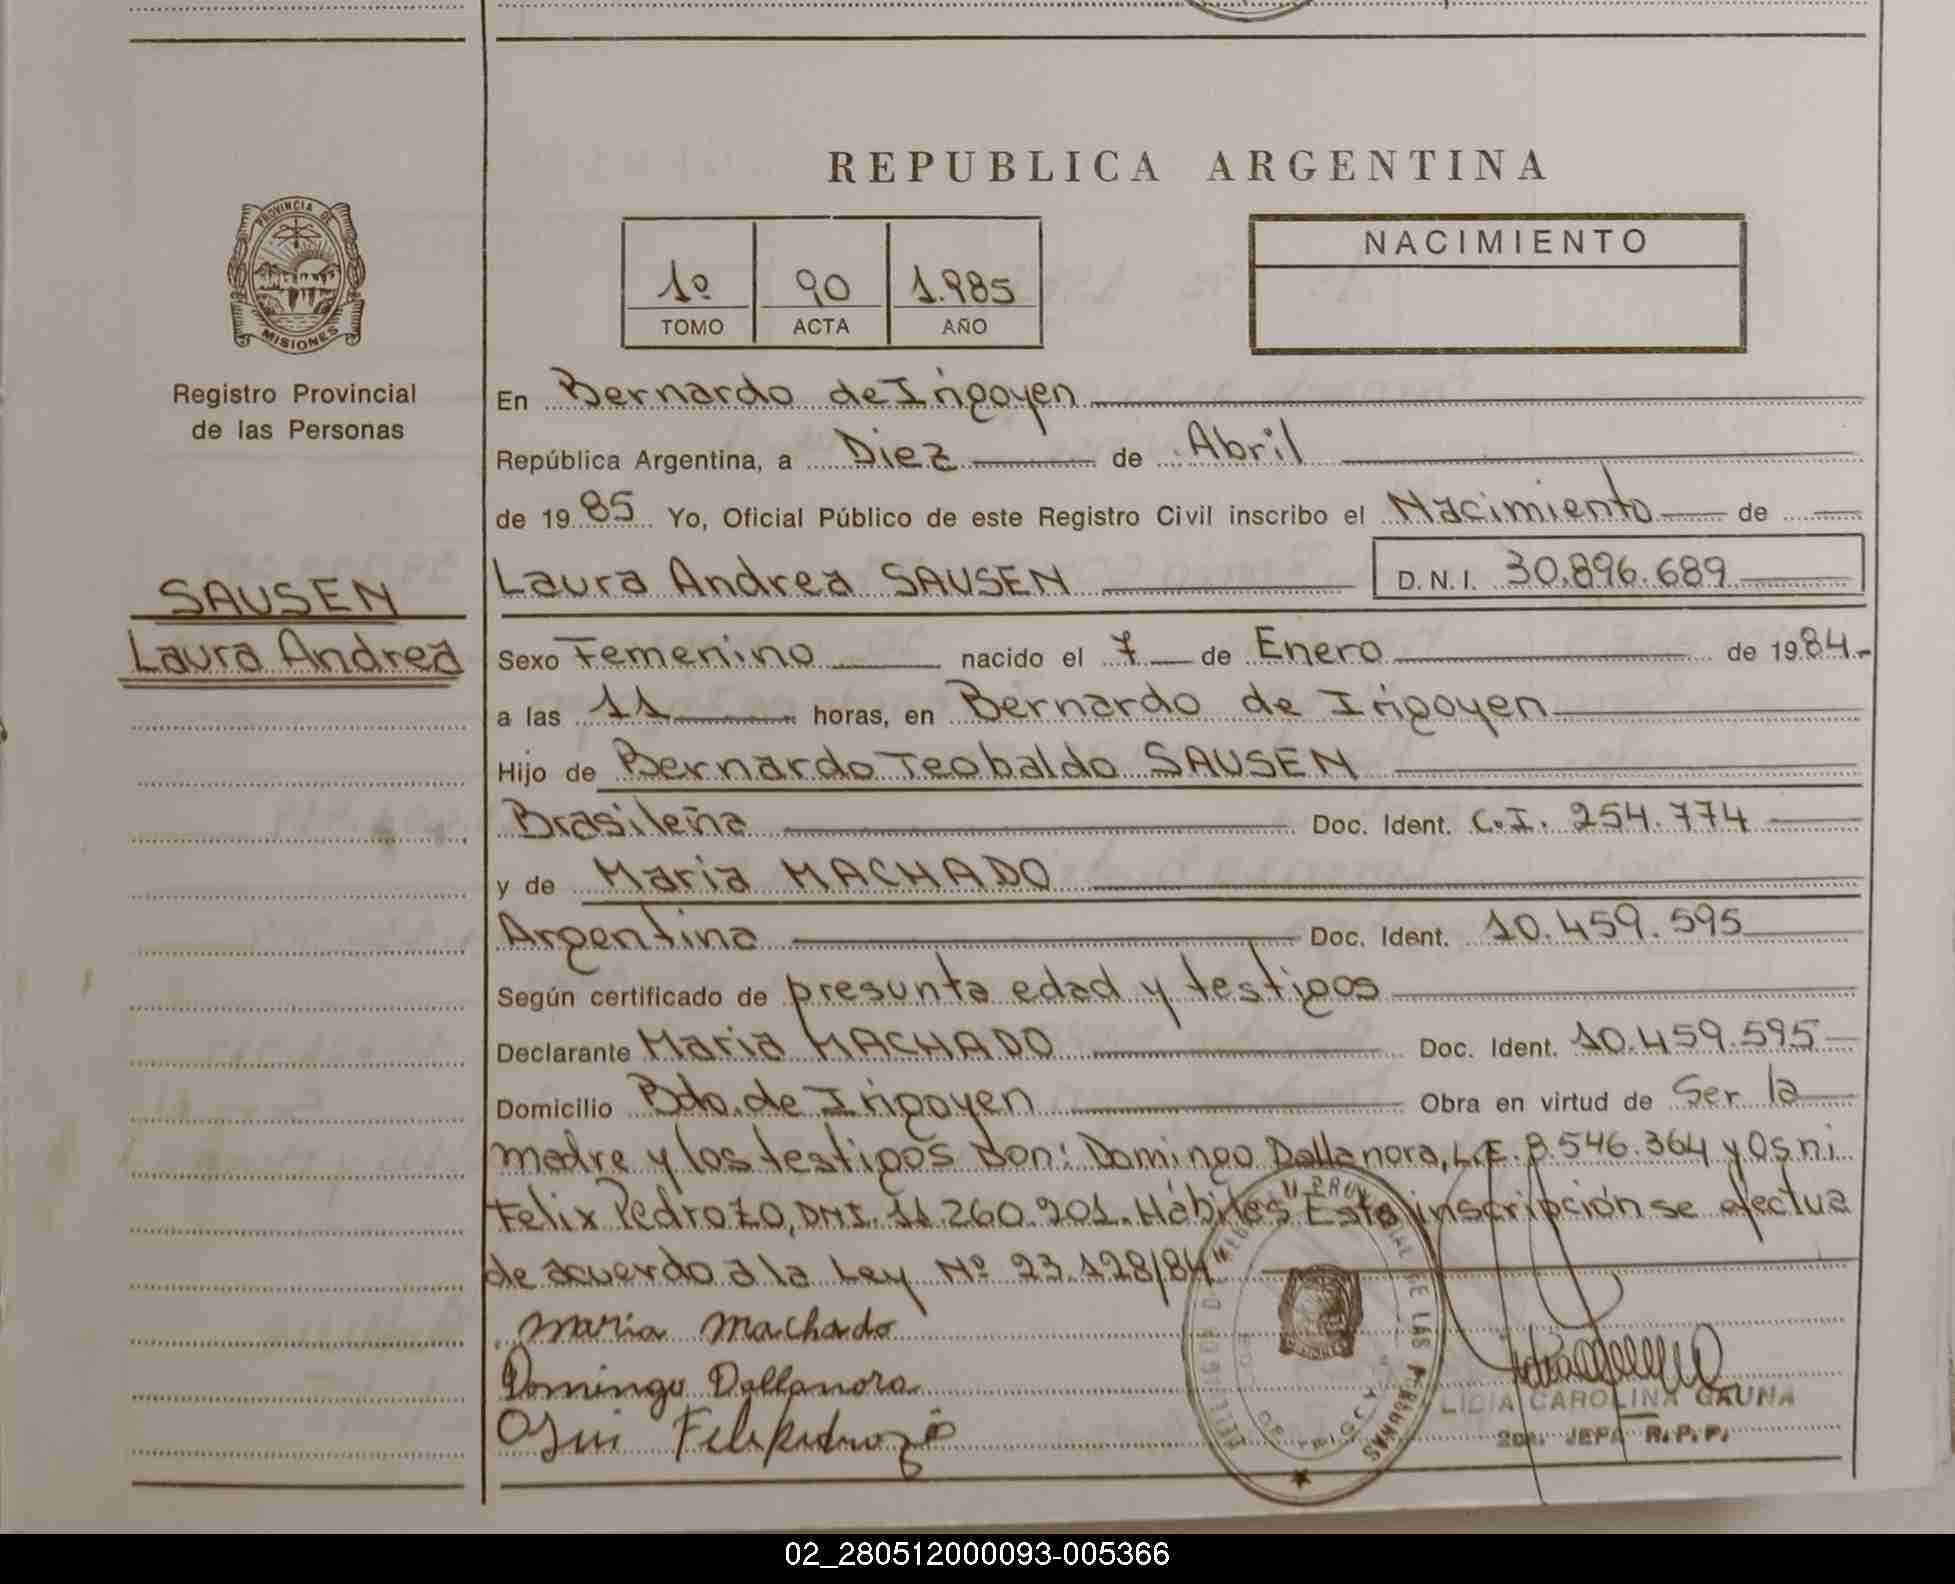 REPUBLICA ARGENTINA
PROVINCIA DE
MISIONES
Registro Provincial
de las Personas
SAUSEN
Laura Andrea
1º 90 1.985
TOMO ACTA AÑO
NACIMIENTO
En Bernardo de Irigoyen
República Argentina, a Diez de Abril
de 1985 Yo, Oficial Público de este Registro Civil inscribo el Nacimiento de
Laura Andrea SAUSEN D.N.I. 30.896.689
Sexo Femenino nacido el 7 de Enero de 1984.-
a las 11 horas, en Bernardo de Irigoyen
Hijo de Bernardo Teobaldo SAUSEN
Brasileña Doc. Ident. C.I. 254.774
y de Maria MACHADO
Argentina Doc. Ident. 10.459.595
Según certificado de presunta edad y testigos
Declarante Maria MACHADO Doc. Ident. 10.459.595
Domicilio Bdo. de Irigoyen Obra en virtud de Ser la
madre y los testigos Don: Domingo Dallanora, L.E. 8.546.364 y Osni
Felix Pedrozo, DNI. 11.260.201. Hábiles Esta inscripción se efectua
de acuerdo a la Ley Nº 23.128/84
Maria Machado
Domingo Dallanora
Osni Felix Pedrozo
LIDIA CAROLINA GAUNA
JEFA R.P.P.
02_280512000093-005366